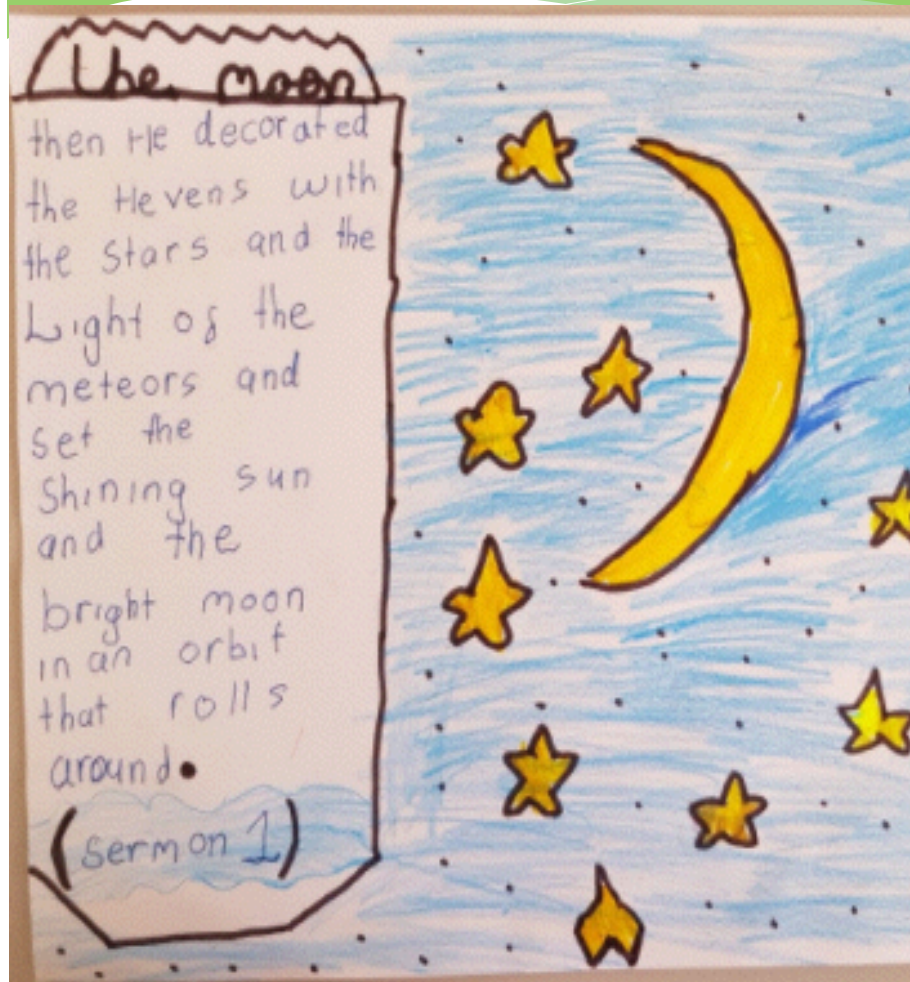 the moon
then He decorated
the Hevens with
the stars and the
Light of the
meteors and
set the
Shining sun
and the
bright moon
in an orbit
that rolls
around.
(Sermon 1)